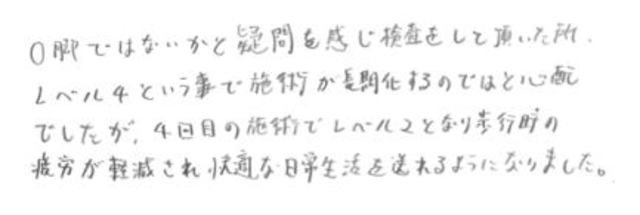 O脚ではないかと疑問を感じ検査をして頂いた所、
レベル4という事で施術が長期化するのではと心配
でしたが、4回目の施術でレベル2となり歩行時の
疲労が軽減され、快適な日常生活を送れるようになりました。